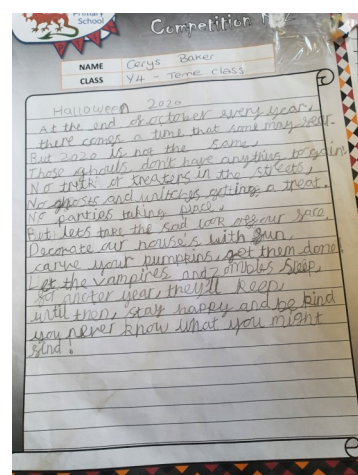 Primary
School
Competition
NAME Cerys Baker
CLASS Y4 - Teme class
Halloween 2020
At the end of october every year,
there comes a time that some may fear.
But 2020 is not the same,
Those ghouls don't have anything to gain
No trick or treaters in the streets,
No ghosts and witches getting a treat.
No parties taking place,
But let's take the sad look off our face,
Decorate our house's with fun,
carve your pumpkins, get them done.
Let the vampires and zombies sleep,
for another year, they'll keep,
until then, stay happy and be kind
you never know what you might
find!